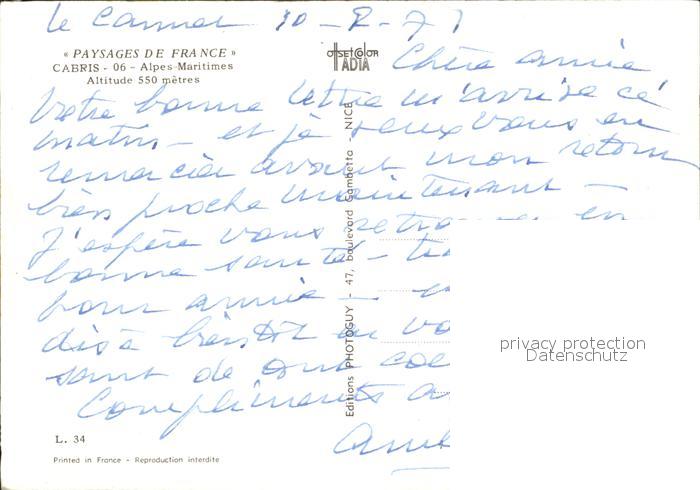 Le Cannet 10-2-71
« PAYSAGES DE FRANCE »
CABRIS - 06 - Alpes-Maritimes
Altitude 550 mètres
offset Color
ADIA
Chère amie
Votre bonne lettre m'arrive ce
matin - et je veux vous en
remercier avant mon retour
bien proche maintenant -
J'espère vous retrouver en
bonne santé -
bonne année -
dis à bientôt
de
Compliments
Editions PHOTOGUY - 47, boulevard Gambetta - NICE
privacy protection
Datenschutz
L. 34
Printed in France - Reproduction interdite